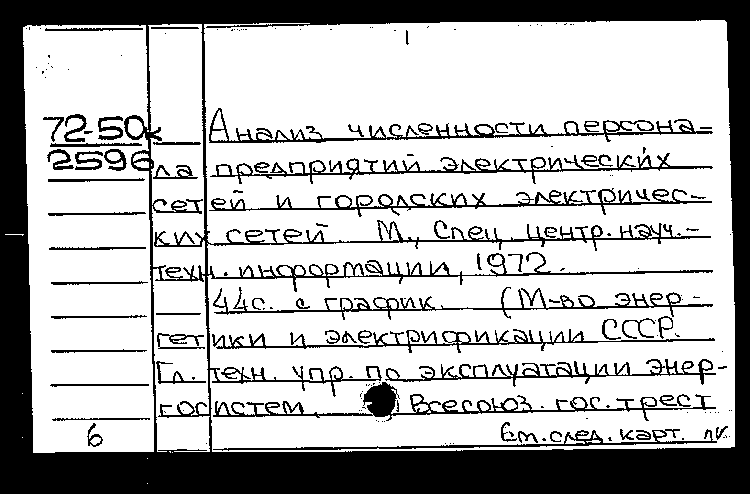 72-50к
2596
Анализ численности персона=
ла предприятий электрических
сетей и городских электричес-
ких сетей. М., Спец. центр. науч.-
техн. информации, 1972.
44с. с график. (М-во энер-
гетики и электрификации СССР.
Гл. техн. упр. по эксплуатации энер-
госистем. Всесоюз. гос. трест
6
См. след. карт.